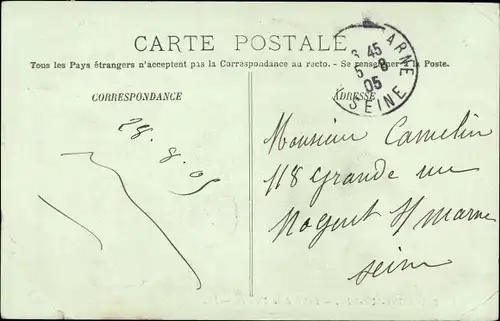 CARTE POSTALE
Tous les Pays étrangers n'acceptent pas la Correspondance au recto. - Se renseigner à la Poste.
CORRESPONDANCE
ADRESSE
ARNE
45
5 - 8
05
SEINE
28.8.05
Monsieur Camelin
118 Grande rue
Nogent s/ Marne
Seine